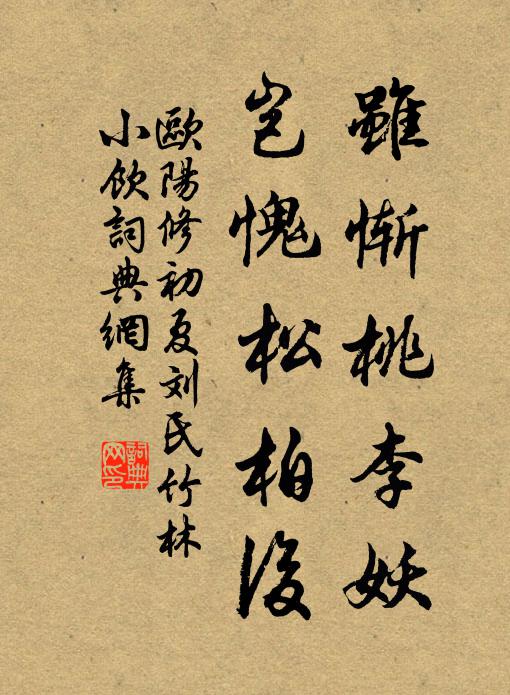 雖慚桃李妖
豈愧松柏後
歐陽修初夏刘氏竹林
小飲詞典網集
詞典
网印